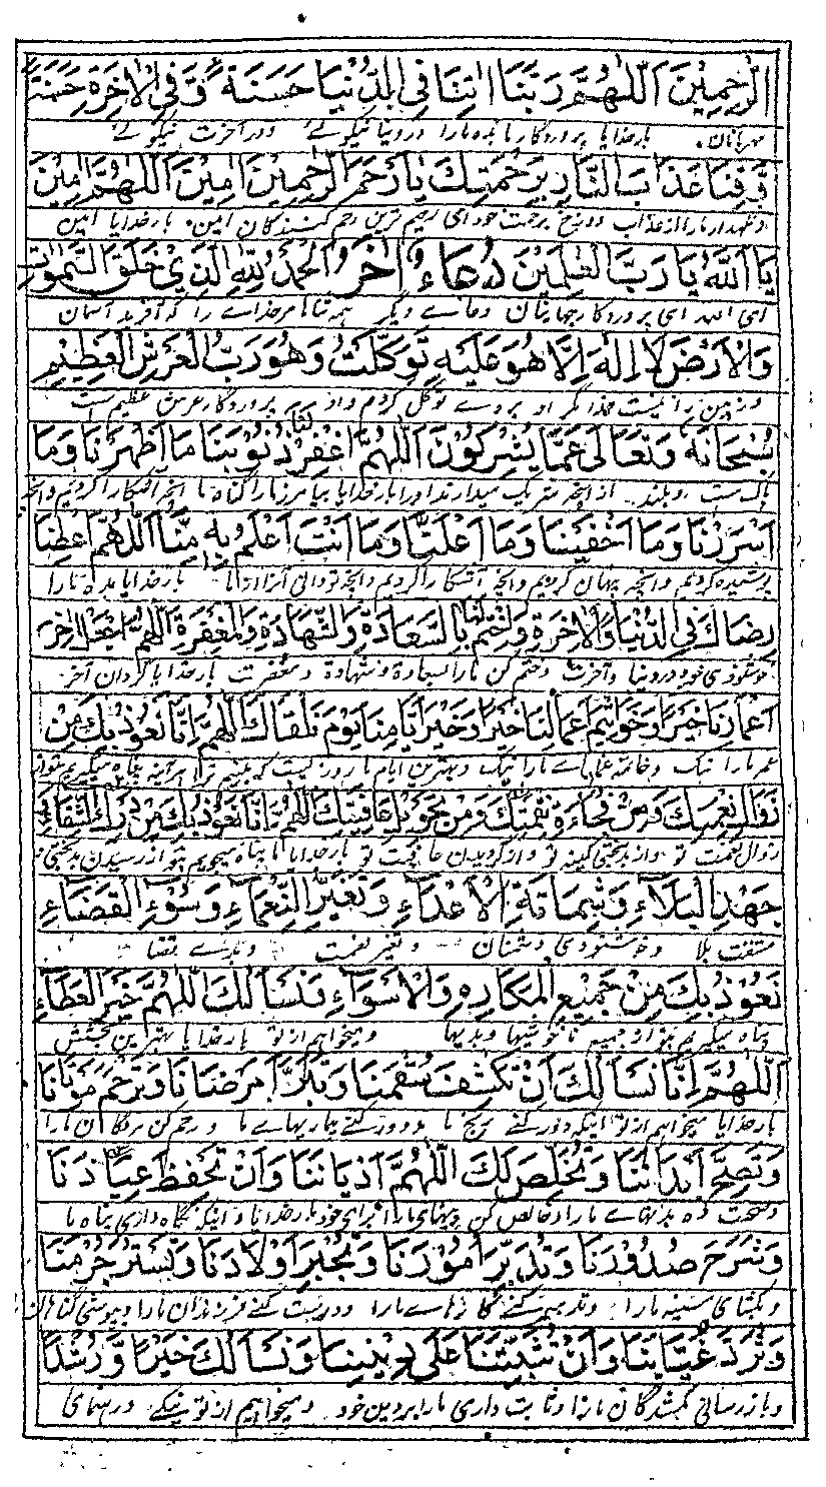 الرَّحِمِيْنَ اَللّٰهُمَّ رَبَّنَا اٰتِنَا فِي الدُّنْيَا حَسَنَةً وَّفِي الْاٰخِرَةِ حَسَنَةً
مهربانان بارخدایا پروردگار ما بده مارا در دنیا نیکوئے و در آخرت نیکوئے
وَّقِنَا عَذَابَ النَّارِ بِرَحْمَتِكَ يَا اَرْحَمَ الرّٰحِمِيْنَ اٰمِيْنَ اَللّٰهُمَّ اٰمِيْنَ
و نگهدار مارا از عذاب دوزخ برحمت خود ای رحیم ترین رحم کنندگان آمین بارخدایا آمین
يَا اَللّٰهُ يَا رَبَّ الْعٰلَمِيْنَ دُعَاءِ اٰخَرْ اَلْحَمْدُ لِلّٰهِ الَّذِيْ خَلَقَ السَّمٰوٰتِ
ای الله ای پروردگار جهانیان دعائے دیگر همه ثناها مر خدائے را که آفرید آسمان
وَالْاَرْضَ لَا اِلٰهَ اِلَّا هُوَ عَلَيْهِ تَوَكَّلْتُ وَهُوَ رَبُّ الْعَرْشِ الْعَظِيْمِ
و زمین را نیست خدا مگر او بر وے توکل کردم و او پروردگار عرش عظیم است
سُبْحَانَهٗ وَتَعَالٰى عَمَّا يُشْرِكُوْنَ اَللّٰهُمَّ اغْفِرْ لَنَا ذُنُوْبَنَا مَا اَظْهَرْنَا وَمَا
پاک ست و بلند از آنچه شریک میدارند او را بارخدایا بیامرز مارا گناه ما آنچه آشکارا کردیم و آنچه
اَسْرَرْنَا وَمَا اَخْفَيْنَا وَمَا اَعْلَنَّا وَمَا اَنْتَ اَعْلَمُ بِهٖ مِنَّا اَللّٰهُمَّ اَعْطِنَا
پوشیده کردیم و آنچه پنهان کردیم و آنچه آشکارا کردیم و آنچه تو دانی آنرا از ما بارخدایا بده مارا
رِضَاكَ فِي الدُّنْيَا وَالْاٰخِرَةِ وَاخْتِمْ لَنَا بِالسَّعَادَةِ وَالشَّهَادَةِ وَالْمَغْفِرَةِ اَللّٰهُمَّ اجْعَلْ اٰخِرَ
خوشنودی خود در دنیا و آخرت و ختم کن مارا بسعادة و شهادة و مغفرت بارخدایا گردان آخر
اَعْمَارِنَا خَيْرًا وَخَوَاتِيْمَ اَعْمَالِنَا خَيْرًا وَخَيْرَ اَيَّامِنَا يَوْمَ نَلْقَاكَ اَللّٰهُمَّ اِنَّا نَعُوْذُ بِكَ مِنْ
عمر مارا نیک و خاتمه عملهاے مارا نیک و بهترین ایام ما روزیست که بینیم ترا
زَوَالِ نِعْمَتِكَ وَمِنْ فُجَاءَةِ نِقْمَتِكَ وَمِنْ تَحَوُّلِ عَافِيَتِكَ اَللّٰهُمَّ اِنَّا نَعُوْذُ بِكَ مِنْ دَرَكِ الشَّقَاءِ
زوال نعمت تو و از تو و از گردیدن عافیت تو بارخدایا ما پناه میجوییم بتو از رسیدن بدبختی
جَهْدِ الْبَلَاءِ وَشَمَاتَةِ الْاَعْدَاءِ وَتَغَيُّرِ النِّعْمَاءِ وَسُوْءِ الْقَضَاءِ
مشقت بلا و خوشنودی دشمنان و تغیر نعمت و بدی قضا
نَعُوْذُ بِكَ مِنْ جَمِيْعِ الْمَكَارِهِ وَالْاَسْوَاءِ وَنَسْاَلُكَ اَللّٰهُمَّ خَيْرَ الْعَطَاءِ
پناه میگیریم بتو از جمیع ناخوشیها و بدیها و میخواهیم از تو بارخدایا بهترین بخشش
اَللّٰهُمَّ اِنَّا نَسْاَلُكَ اَنْ تَكْشِفَ سُقْمَنَا وَتُبْرِءَ اَمْرَضَانَا وَتَرْحَمَ مَوْتَانَا
بارخدایا میخواهیم از تو اینکه دور کنے رنج ما و دور کنے بیماریهاے ما و رحم کن مردگان مارا
وَتُصِحَّ اَبْدَانَنَا وَتُخَلِّصَ لَكَ اَللّٰهُمَّ اَدْيَانَنَا وَاَنْ تَحْفَظَ عِيَاذَنَا
و صحت ده بدنهاے مارا و خالص کن دینهای مارا برای خود بارخدایا و اینکه نگاه داری پناه ما
وَتَشْرَحَ صُدُوْرَنَا وَتُدَبِّرَ اُمُوْرَنَا وَتُجْبِرَ اَوْلَادَنَا وَتَسْتُرَ جُرْمَنَا
و بکشای سینه مارا و تدبیر کنے کارهاے مارا و درست کنے فرزندان مارا و بپوشی گناهان
وَتَرُدَّ غُيَّابَنَا وَاَنْ تُثَبِّتَنَا عَلٰى دِيْنِنَا وَنَسْاَلُكَ خَيْرًا وَّرُشْدًا
و باز رسانی گمشدگان مارا و ثابت داری مارا بر دین خود و میخواهیم از تو نیکے و رهنمای